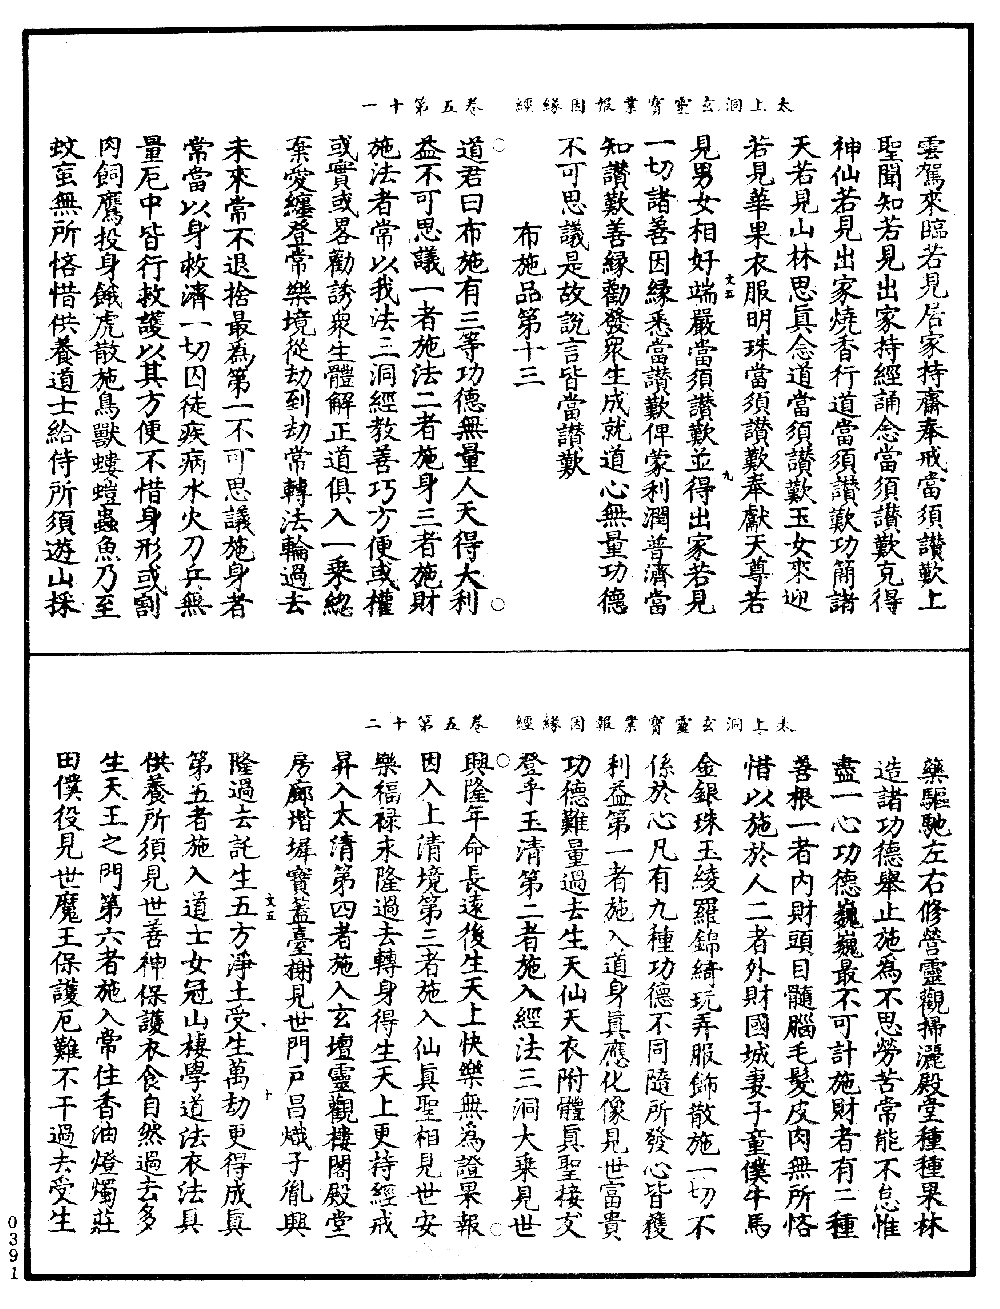 太上洞玄靈寶業報因緣經　卷五第十一
雲駕來臨若見居家持齋奉戒當須讚歎上
聖聞知若見出家持經誦念當須讚歎克得
神仙若見出家燒香行道當須讚歎功簡諸
天若見山林思眞念道當須讚歎玉女來迎
若見華果衣服明珠當須讚歎奉獻天尊若
文五　九
見男女相好端嚴當須讚歎並得出家若見
一切諸善因緣悉當讚歎俾蒙利潤普濟當
知讚歎善緣勸發衆生成就道心無量功德
不可思議是故說言皆當讚歎
布施品第十三
道君曰布施有三等功德無量人天得大利
益不可思議一者施法二者施身三者施財
施法者常以我法三洞經教善巧方便或權
或實或畧勸誘衆生體解正道俱入一乘緫
棄愛纏登常樂境從劫到劫常轉法輪過去
未來常不退捨最爲第一不可思議施身者
常當以身救濟一切囚徒疾病水火刀兵無
量厄中皆行救護以其方便不惜身形或割
肉飼鷹投身餓虎散施鳥獸螻螘蟲魚乃至
蚊䖟無所悋惜供養道士給侍所須遊山採
太上洞玄靈寶業報因緣經　卷五第十二
藥驅馳左右修營靈觀掃灑殿堂種種果林
造諸功德舉止施爲不思勞苦常能不怠惟
盡一心功德巍巍最不可計施財者有二種
善根一者內財頭目髓腦毛髮皮肉無所悋
惜以施於人二者外財國城妻子童僕牛馬
金銀珠玉綾羅錦綺玩弄服飾散施一切不
係於心凡有九種功德不同隨所發心皆獲
利益第一者施入道身眞應化像見世富貴
功德難量過去生天仙天衣附體眞聖接交
登乎玉清第二者施入經法三洞大乘見世
興隆年命長遠後生天上快樂無爲證果報
因入上清境第三者施入仙眞聖相見世安
樂福祿永隆過去轉身得生天上更持經戒
昇入太清第四者施入玄壇靈觀樓閣殿堂
房廊堦墀寶蓋臺榭見世門戸昌熾子胤興
文五　十
隆過去託生五方淨土受生萬劫更得成眞
第五者施入道士女冠山棲學道法衣法具
供養所須見世善神保護衣食自然過去多
生天王之門第六者施入常住香油燈燭莊
田僕役見世魔王保護厄難不干過去受生
0391